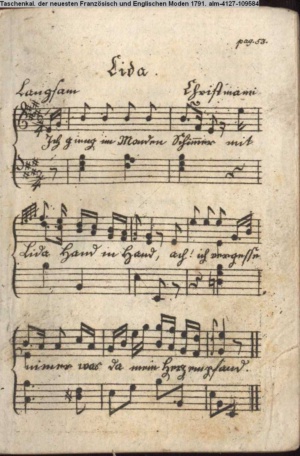 Taschenkal. der neuesten Französisch und Englischen Moden 1791. alm-4127-109584
pag. 53.
Lida
Langsam Christmann
Ich gieng im Monden Schimmer mit
Lida Hand in Hand, ach! ich vergesse
nimer was da mein Herz empfand.